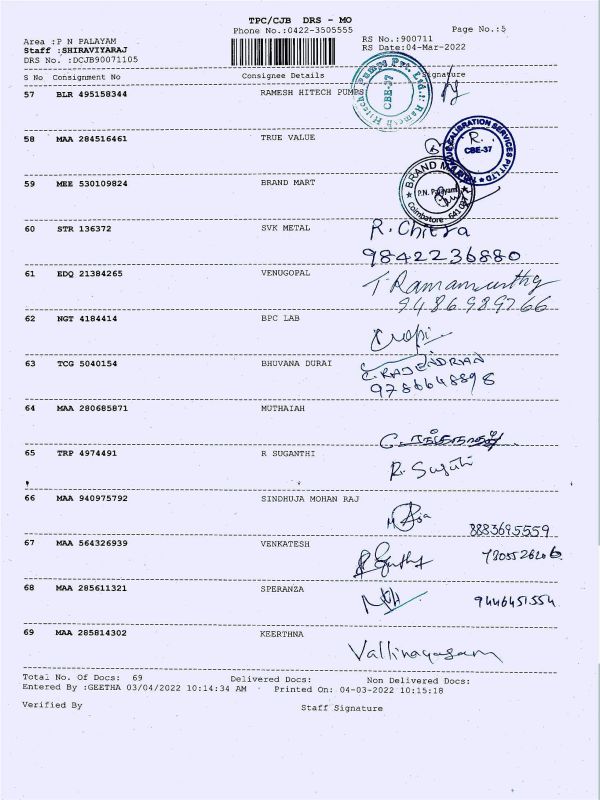 TPC/CJB DRS - MO
Phone No.:0422-3505555
Page No.:5
Area :P N PALAYAM
RS No.:900711
Staff :SHIRAVIYARAJ
RS Date:04-Mar-2022
DRS No. :DCJB90071105
S No Consignment No Consignee Details Signature
57 BLR 495158344 RAMESH HITECH PUMPS
CBE-37
58 MAA 284516461 TRUE VALUE
R.
CBE-37
59 MEE 530109824 BRAND MART
BRAND MART
P.N. Palayam
Coimbatore - 641 037
60 STR 136372 SVK METAL R. Chitra
9842236880
61 EDQ 21384265 VENUGOPAL T. Ramamurthy
9486989766
62 NGT 4184414 BPC LAB
63 TCG 5040154 BHUVANA DURAI C. RAJENDRIAN
9786648898
64 MAA 280685871 MUTHAIAH
65 TRP 4974491 R SUGANTHI
R. Suguthi
66 MAA 940975792 SINDHUJA MOHAN RAJ
8883695559
67 MAA 564326939 VENKATESH
68 MAA 285611321 SPERANZA
9446451554
69 MAA 285814302 KEERTHNA
Vallinayagam
Total No. Of Docs: 69 Delivered Docs: Non Delivered Docs:
Entered By :GEETHA 03/04/2022 10:14:34 AM Printed On: 04-03-2022 10:15:18
Verified By Staff Signature